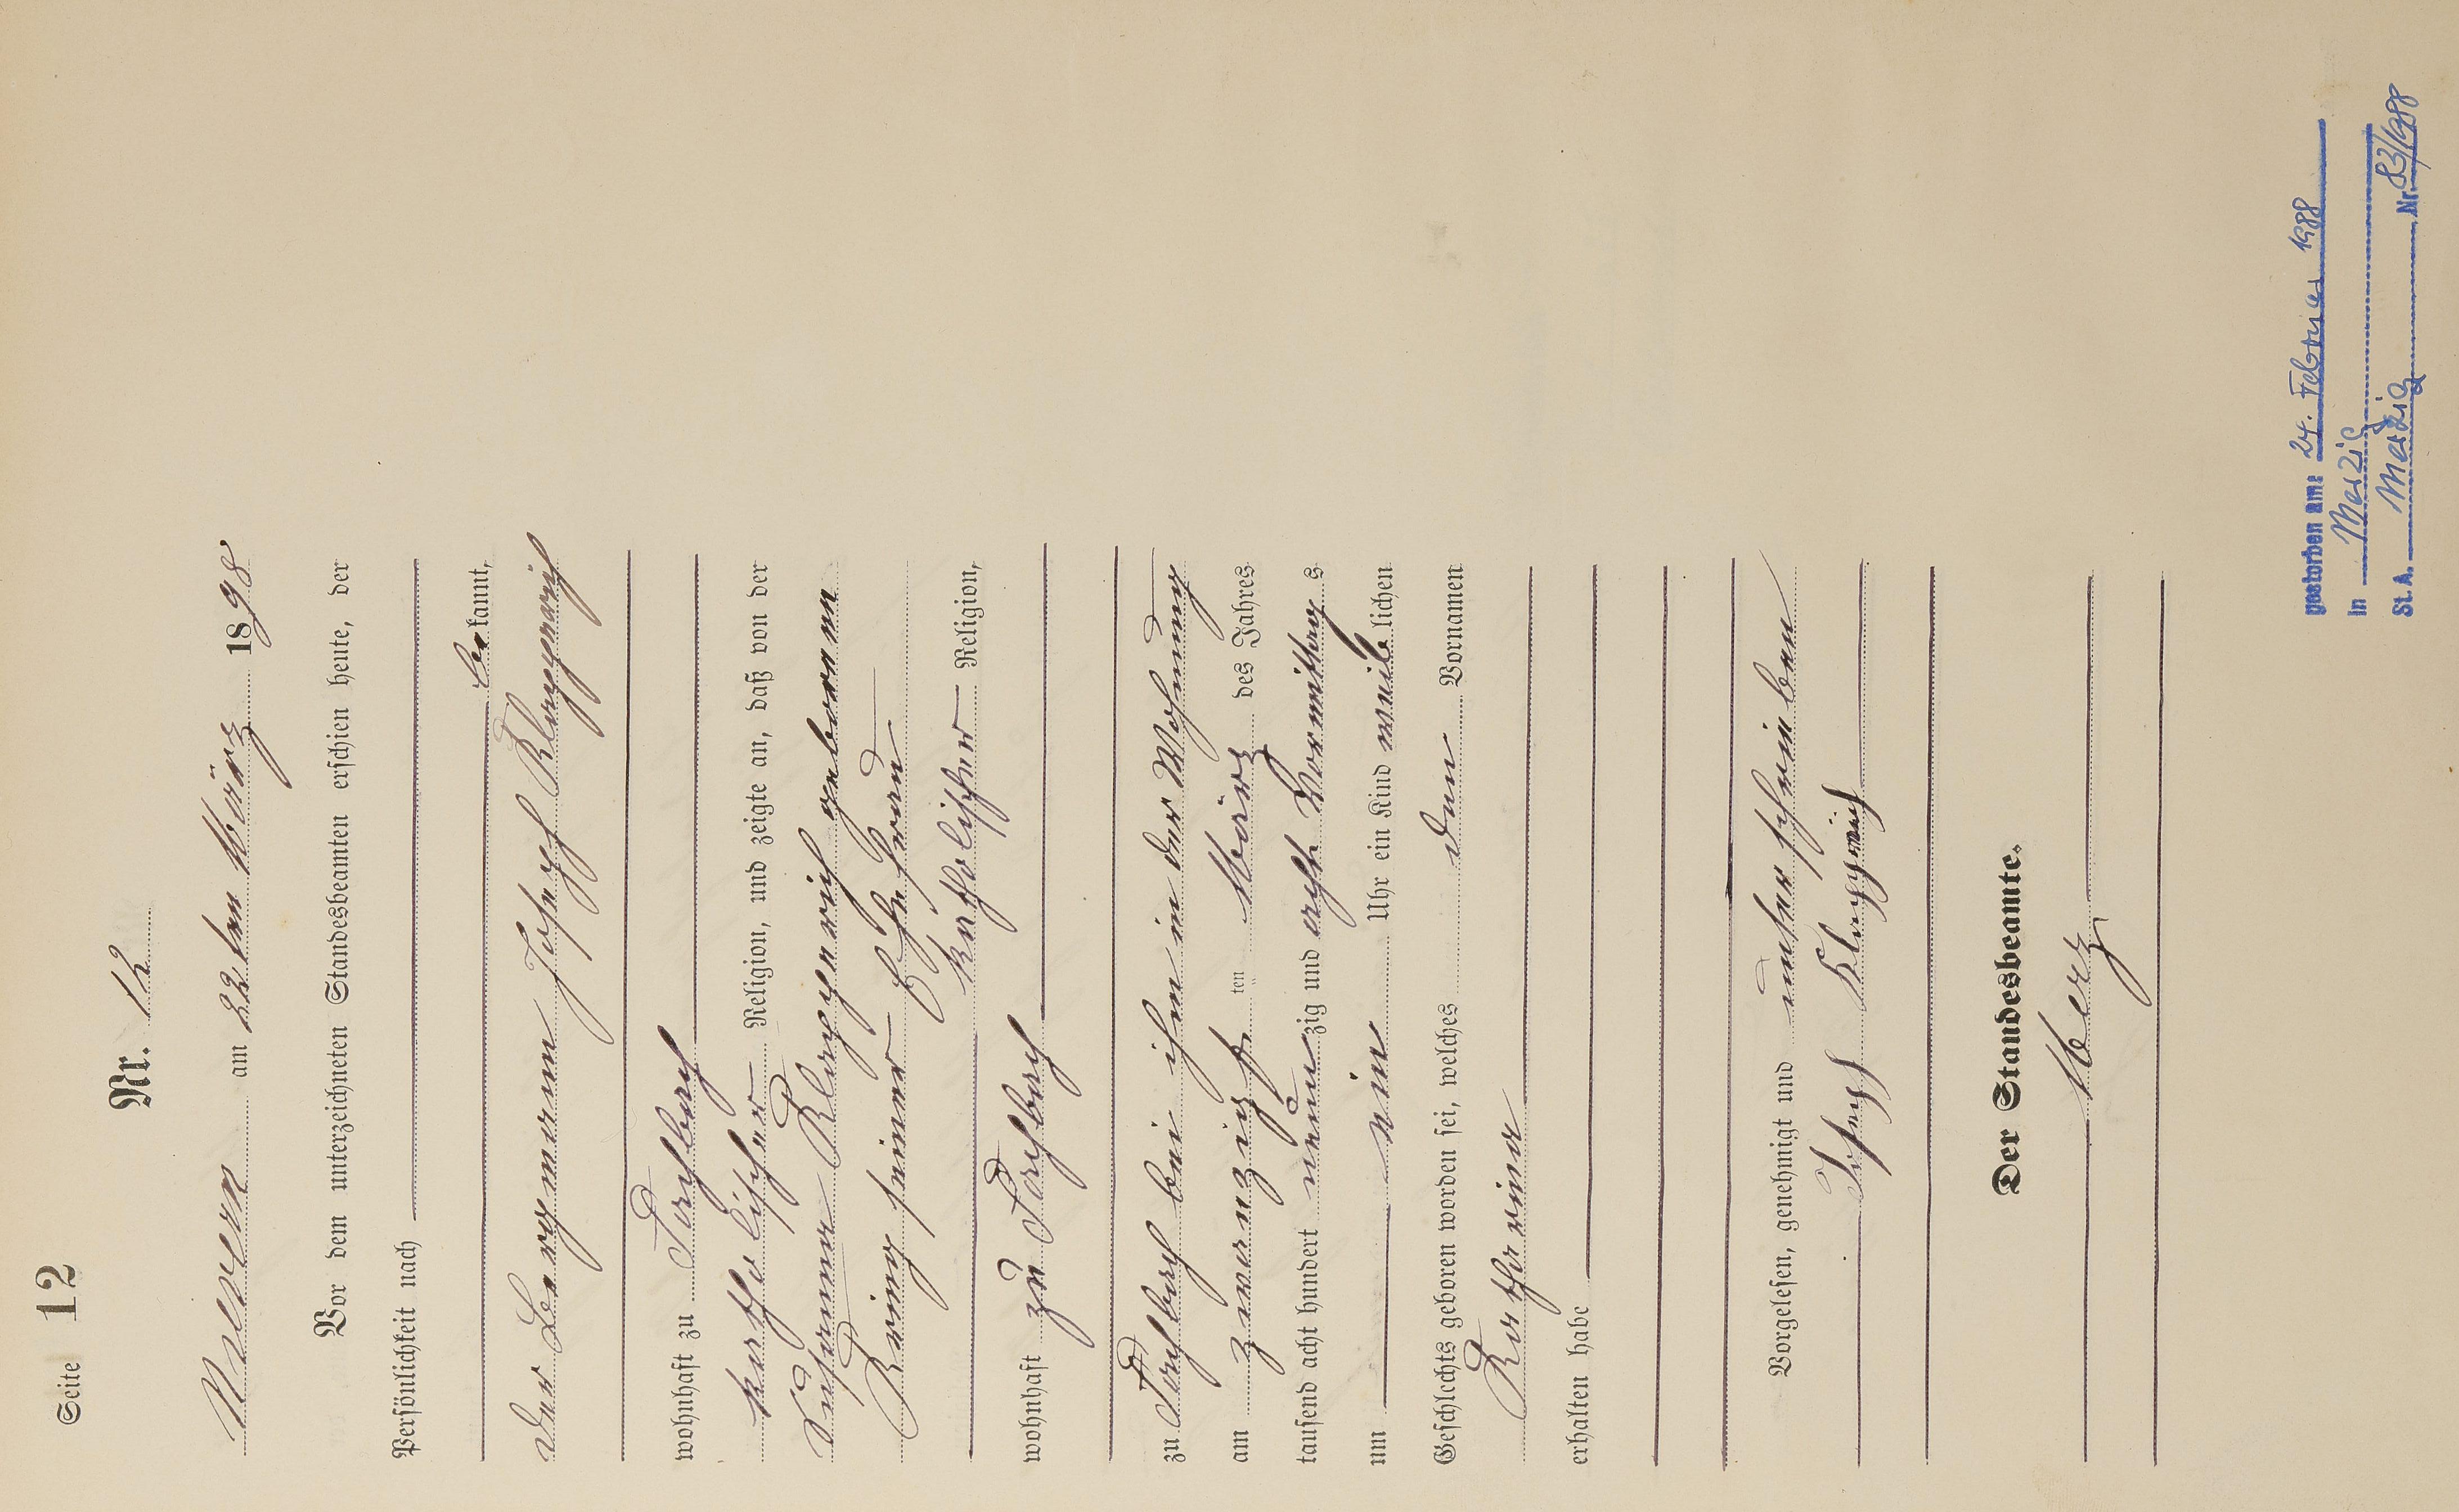 Seite 12
Nr. 12
am 22ten März 1898
Vor dem unterzeichneten Standesbeamten erschien heute, der
Persönlichkeit nach
bekannt,
der Bergmann Joseph Klauck
wohnhaft zu
katholischer Religion, und zeigte an, daß von der
Susanna geborenen
seiner Ehefrau
katholischer Religion,
wohnhaft zu
zu bei ihm in der Wohnung
am zwanzigsten März des Jahres
tausend acht hundert neunzig und acht Vormittags
um ein Uhr ein Kind weiblichen
Geschlechts geboren worden sei, welches den Vornamen
Katharina
erhalten habe
Vorgelesen, genehmigt und unterschrieben
Joseph
Der Standesbeamte.
Merz
gestorben am: 24. Februar 1988
in Merzig
St. A. Merzig Nr. 83/1988